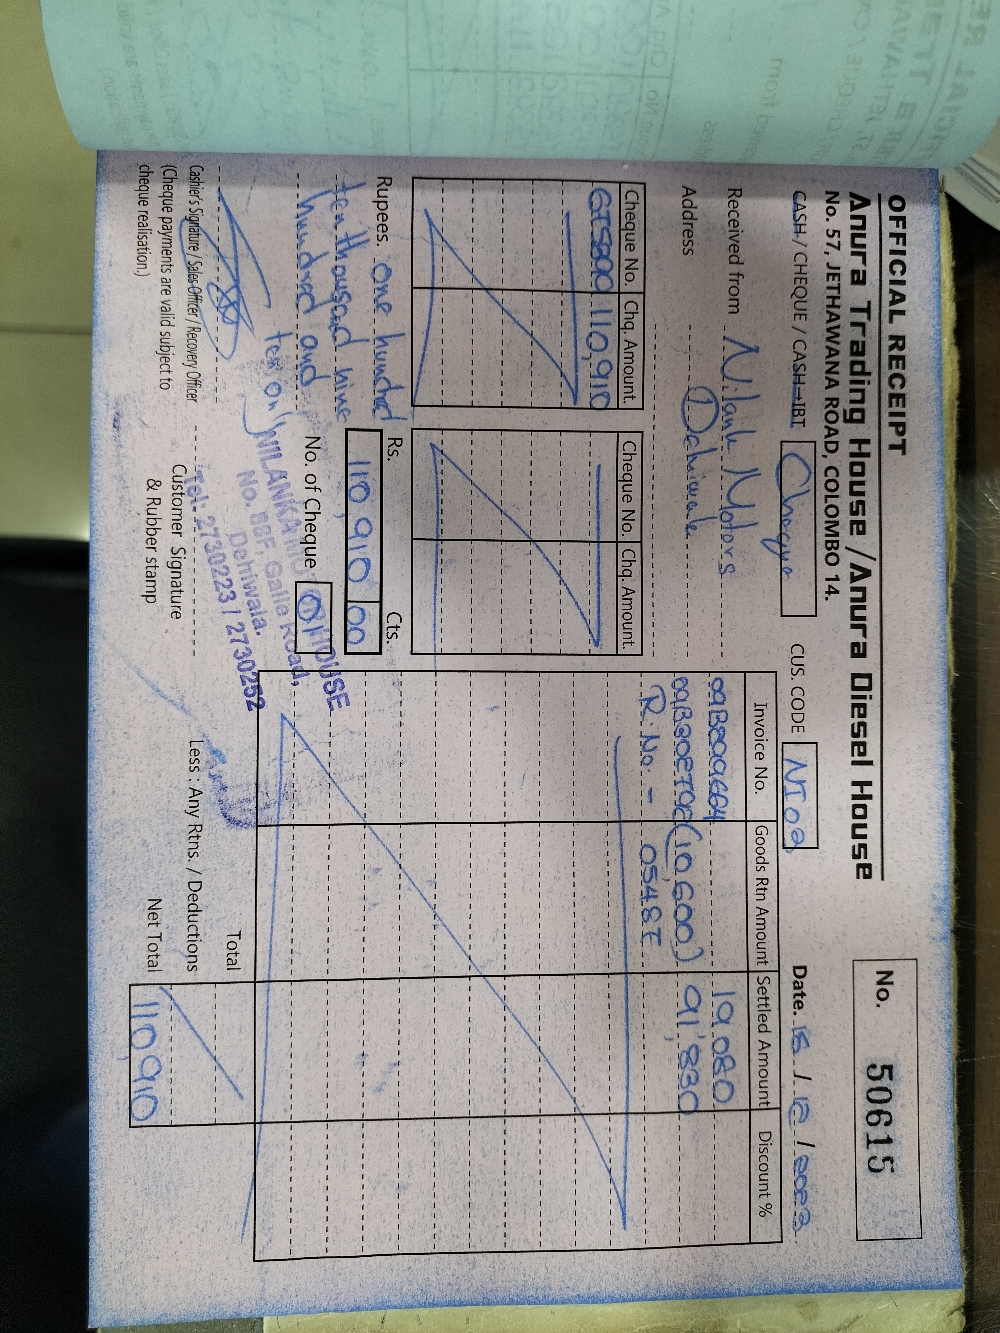 OFFICIAL RECEIPT
Anura Trading House / Anura Diesel House
No. 57, JETHAWANA ROAD, COLOMBO 14.
No. 50615
CASH / CHEQUE / CASH→IBT Cheque CUS. CODE NI02
Date. / 12 /
Received from Motors
Address
Cheque No. Chq. Amount
110,910
Cheque No. Chq. Amount.
Invoice No. Goods Rtn Amount Settled Amount Discount %
19,080
(10,600) 91,830
R. No. -
Rupees. one hundred
ten thousand nine
hundred and
ten only
Rs. Cts.
110,910 00
No. of Cheque 01
NILANKA HOUSE
No. 88F, Galle Road,
Dehiwala.
Tel: 2730223 / 2730252
Cashier's Signature / Sales Officer / Recovery Officer
(Cheque payments are valid subject to
cheque realisation.)
Customer Signature
& Rubber stamp
Total
Less : Any Rtns. / Deductions
Net Total 110,910